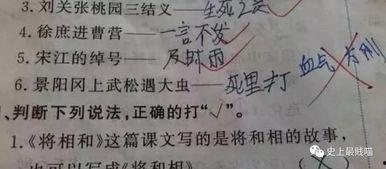 3. 刘关张桃园三结义——生死之交
4. 徐庶进曹营——一言不发
5. 宋江的绰号——及时雨
6. 景阳冈上武松遇大虫——死里打 血气方刚
、判断下列说法，正确的打“√”。
1.《将相和》这篇课文写的是将和相的故事，
也可以写成《将和相》 (×)
史上最贱喵